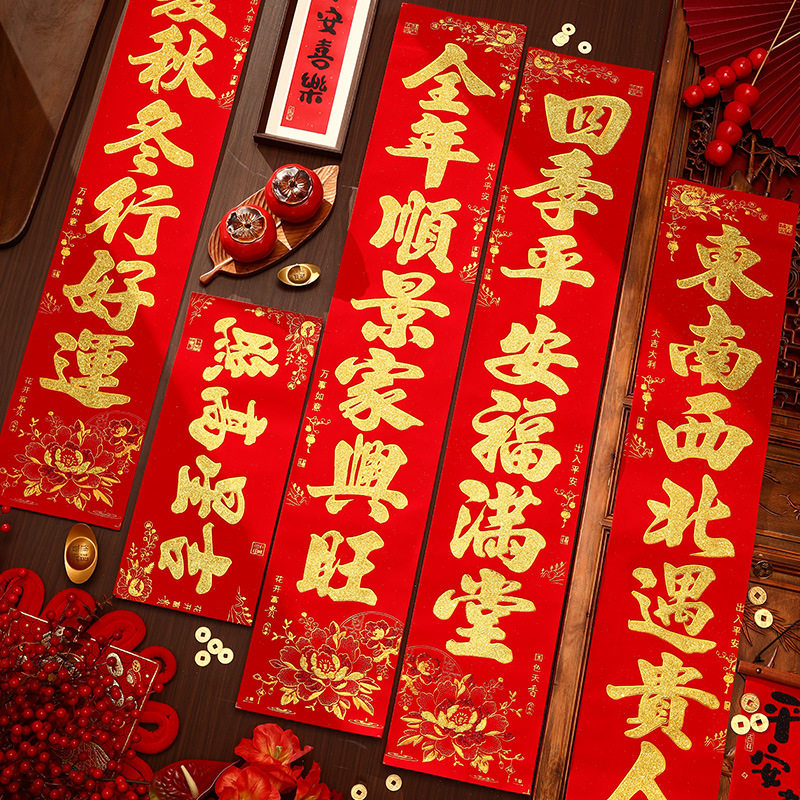 夏秋冬行好運
出入平安
万事如意
花开富贵
安喜樂
吉星高照
全年順景家興旺
出入平安
万事如意
花开富贵
四季平安福滿堂
大吉大利
出入平安
国色天香
東南西北遇貴人
大吉大利
出入平安
平安